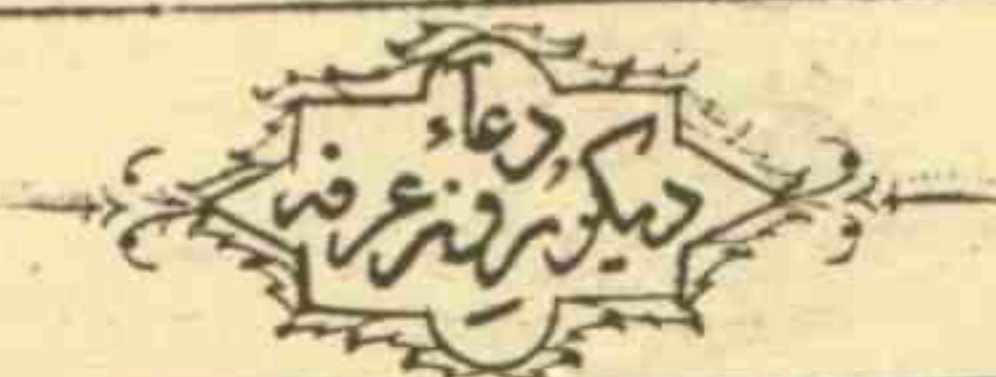 دعآء
دیگر روز عرفه